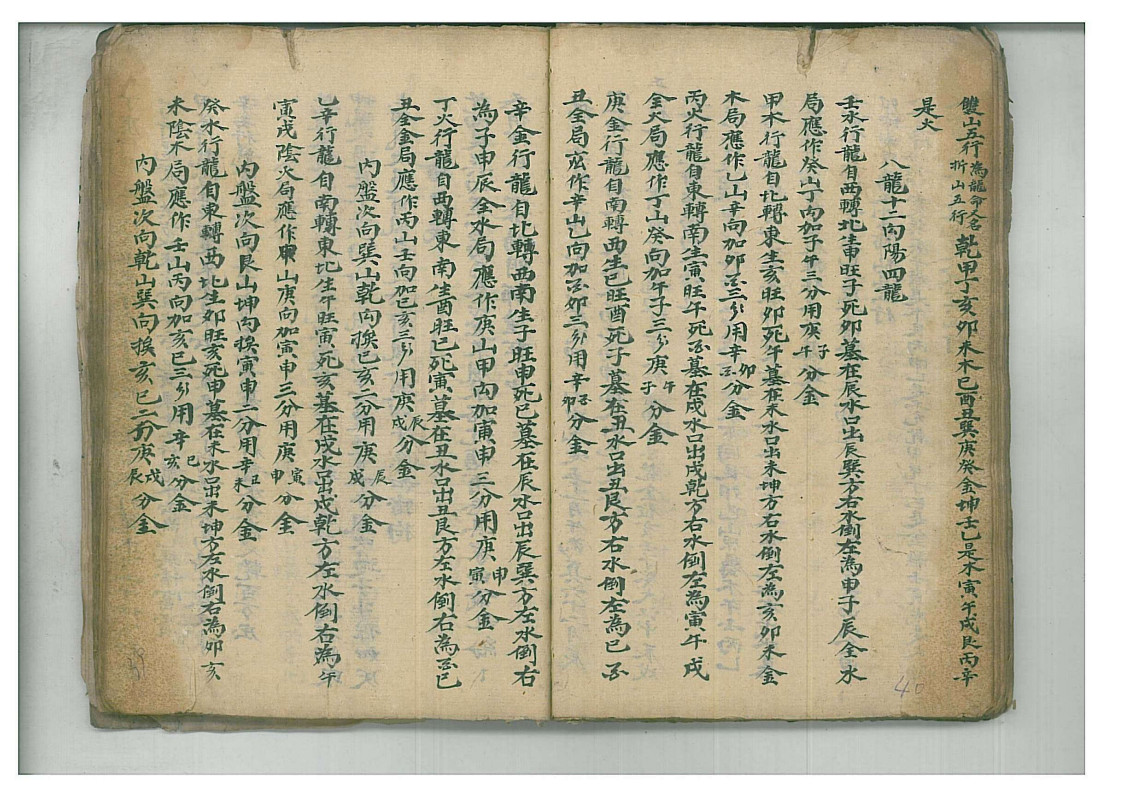 雙山五行為龍命入首折山五行乾甲丁亥卯未木巳酉丑巽庚癸金坤壬乙是水寅午戌艮丙辛
是火
八龍十二向陽四龍
壬水行龍自西轉北生申旺子死卯墓在辰水口出辰巽方右水倒左為申子辰全水
局應作癸山丁向加子午三分用庚子午分金
甲木行龍自北轉東生亥旺卯死午墓在未水口出未坤方右水倒左為亥卯未金
木局應作乙山辛向加卯酉三分用辛卯酉分金
丙火行龍自東轉南生寅旺午死酉墓在戌水口出戌乾方右水倒左為寅午戌
全火局應作丁山癸向加午子三分庚午子分金
庚金行龍自南轉西生巳旺酉死子墓在丑水口出丑艮方右水倒左為巳酉
丑全局應作辛山乙向加酉卯三分用辛酉卯分金
辛金行龍自北轉西南生子旺申死巳墓在辰水口出辰巽方左水倒右
為子申辰全水局應作庚山甲向加寅申三分用庚申寅分金
丁火行龍自西轉東南生酉旺巳死寅墓在丑水口出丑艮方左水倒右為酉巳
丑全金局應作丙山壬向加巳亥三分用庚辰戌分金
內盤次向巽山乾向挨巳亥二分用庚辰戌分金
乙辛行龍自南轉東北生午旺寅死亥墓在戌水口出戌乾方左水倒右為午
寅戌陰火局應作甲山庚向加寅申三分用庚寅申分金
內盤次向艮山坤向挨寅申一分用辛丑未分金
癸水行龍自東轉西北生卯旺亥死申墓在未水口出未坤方左水倒右為卯亥
未陰木局應作壬山丙向加亥巳三分用辛巳亥分金
內盤次向乾山巽向挨亥巳二分庚戌辰分金
40
39